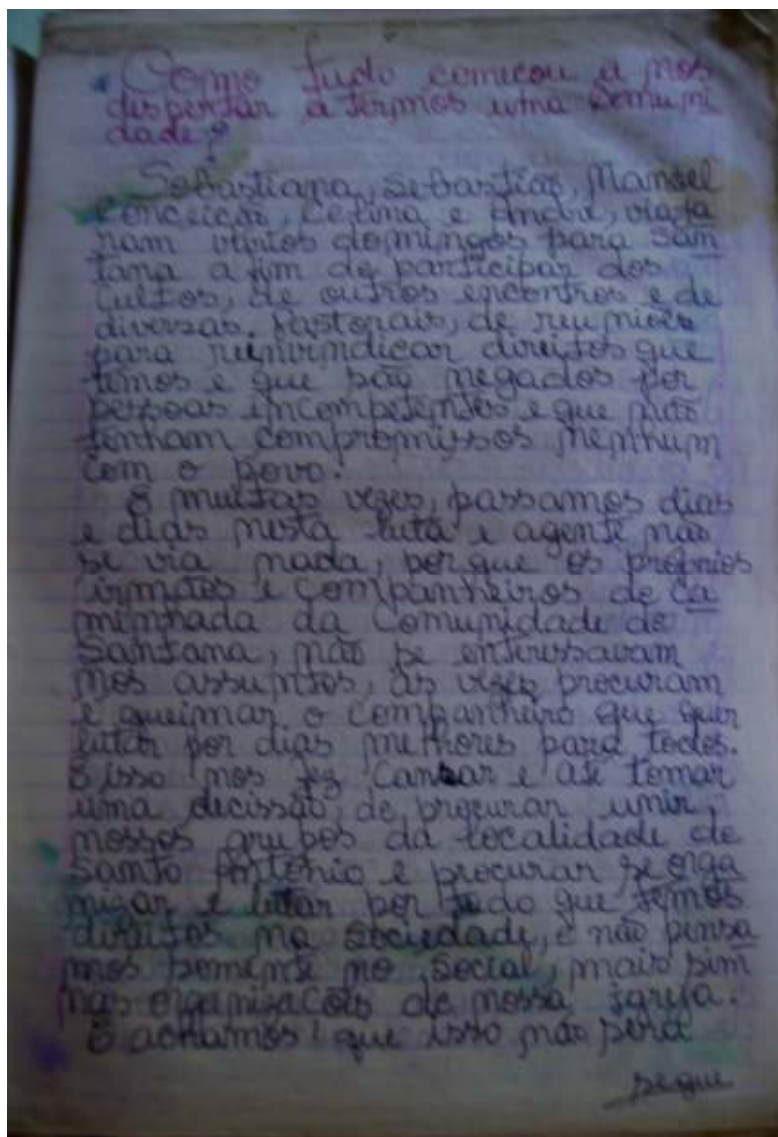 Como tudo começou a nos
despertar a termos uma comuni
dade?
Sebastiana, Sebastião, Manoel
Conceição, Celina e André, viaja
ram vários domingos para San
tana a fim de participar dos
Cultos, de outros encontros e de
diversas. Pastorais, de reuniões
para reinvindicar direitos que
temos e que são negados por
pessoas incompetentes e que não
tenham compromissos nenhum
com o povo.
E muitas vezes, passamos dias
e dias nesta luta e agente não
se via nada, porque os próprios
irmãos e companheiros de ca
minhada da Comunidade de
Santana, não se enteressavam
nos assuntos, as vezes procuram
e queimar o companheiro que quer
lutar por dias melhores para todos.
E isso nos fez cansar e até tomar
uma decissão, de procurar unir,
nossos grupos da localidade de
Santo Antonio e procurar se orga
nizar e lutar por tudo que temos
direitos na sociedade, e não pensa
mos somente no social, mais sim
nas organizações de nossa igreja.
E achamos! que isso não será
segue